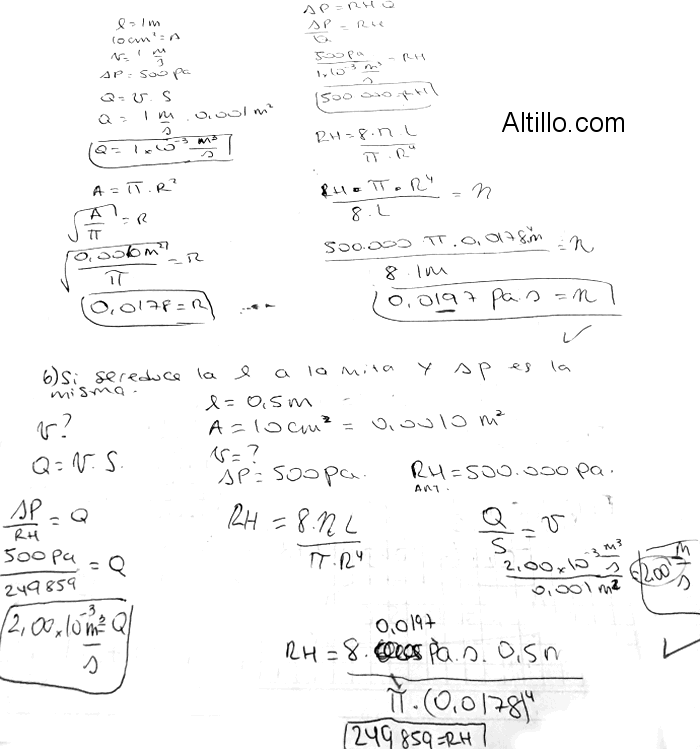 l = 1m
10cm² = A
v = 1 m/s
ΔP = 500 pa
Q = v . S
Q = 1 m/s . 0,001 m²
Q = 1 x 10⁻³ m³/s
A = π . R²
√(A/π) = R
√(0,0010m²/π) = R
0,0178 = R
ΔP = RH Q
ΔP/Q = RH
500pa / 1x10⁻³ m³/s = RH
500 000 = RH
RH = 8.n L / π . R⁴
RH . π . R⁴ / 8 . L = n
500.000 π . 0,0178⁴m / 8 . 1m = n
0,0197 pa.s = n
Altillo.com
6) Si se reduce la l a la mita y ΔP es la
misma.
v?
Q = v. S.
l = 0,5m
A = 10cm² = 0,0010 m²
v = ?
ΔP = 500pa.
RH = 500.000 pa.
ANT.
ΔP/RH = Q
500 pa / 249859 = Q
2,00 x 10⁻³ m³/s = Q
RH = 8.n L / π . R⁴
Q/S = v
2,00 x 10⁻³ m³/s / 0,001 m² = 2,00 m/s
0,0197
RH = 8. pa.s. 0,5m / π . (0,0178)⁴
249 859 = RH